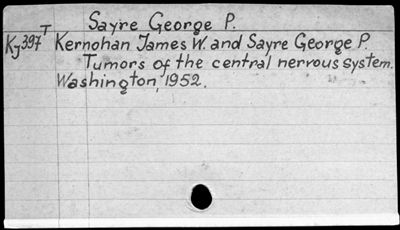 Sayre George P.
Kj397T Kernohan James W. and Sayre George P.
Tumors of the central nervous system.
Washington, 1952.